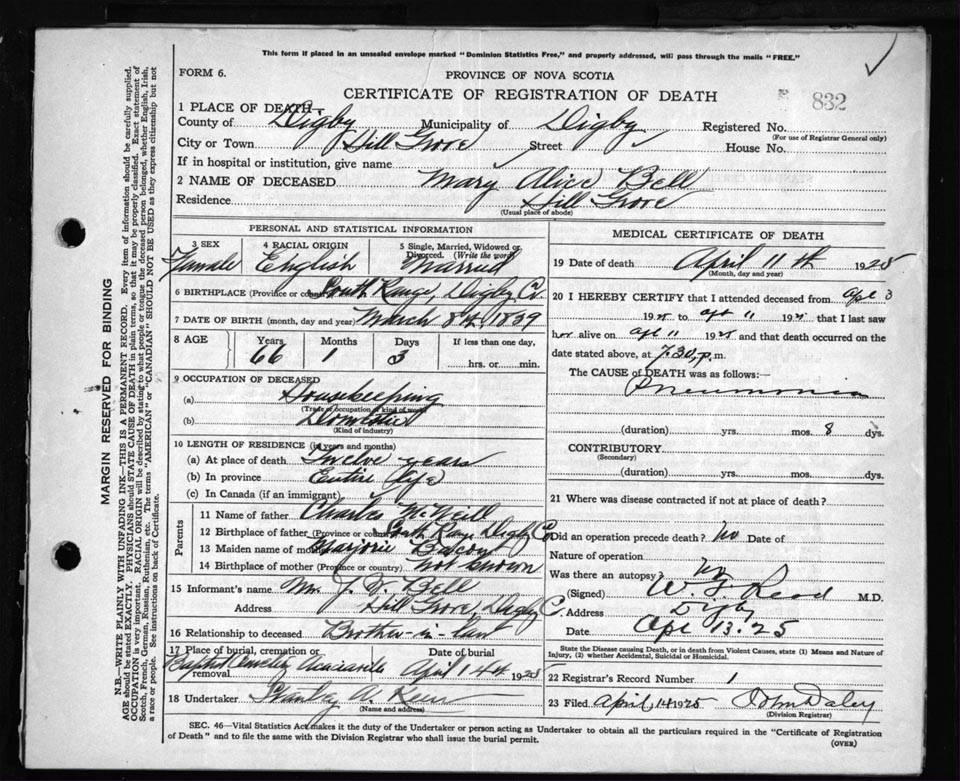 This form if placed in an unsealed envelope marked "Dominion Statistics Free," and properly addressed, will pass through the mails "FREE."
FORM 6.
PROVINCE OF NOVA SCOTIA
CERTIFICATE OF REGISTRATION OF DEATH
832
1 PLACE OF DEATH
County of Digby Municipality of Digby Registered No.
(For use of Registrar General only)
City or Town Hill Grove Street House No.
If in hospital or institution, give name
2 NAME OF DECEASED Mary Alice Bell
Residence Hill Grove
(Usual place of abode)
PERSONAL AND STATISTICAL INFORMATION
3 SEX 4 RACIAL ORIGIN 5 Single, Married, Widowed or Divorced. (Write the word)
Female English Married
6 BIRTHPLACE (Province or country) South Range, Digby Co.
7 DATE OF BIRTH (month, day and year) March 8th, 1859
8 AGE Years Months Days If less than one day,
66 1 3 hrs. or min.
9 OCCUPATION OF DECEASED
(a) Housekeeping
(Trade or occupation or kind of work)
(b) Domestic
(Kind of industry)
10 LENGTH OF RESIDENCE (in years and months)
(a) At place of death Twelve years
(b) In province Entire life
(c) In Canada (if an immigrant)
Parents
11 Name of father Charles McNeill
12 Birthplace of father (Province or country) South Range Digby Co
13 Maiden name of mother Marjorie Bacon
14 Birthplace of mother (Province or country) not known
15 Informant's name Wm. J. V. Bell
Address Hill Grove, Digby Co.
16 Relationship to deceased Brother-in-law
17 Place of burial, cremation or removal Date of burial
Baptist April 14th 1925
18 Undertaker Stanley A.
(Name and address)
MEDICAL CERTIFICATE OF DEATH
19 Date of death April 11th 1925
(Month, day and year)
20 I HEREBY CERTIFY that I attended deceased from Apl 3
1925 to Apl 11 1925 that I last saw
her alive on Apl 11 1925 and that death occurred on the
date stated above, at 7.30, p.m.
The CAUSE of DEATH was as follows:—
Pneumonia
(duration) yrs. mos. 8 dys.
CONTRIBUTORY
(Secondary)
(duration) yrs. mos. dys.
21 Where was disease contracted if not at place of death?
Did an operation precede death? No Date of
Nature of operation
Was there an autopsy? No
(Signed) W. F. Read M.D.
Address Digby
Date Apl 13. 25
State the Disease causing Death, or in death from Violent Causes, state (1) Means and Nature of Injury, (2) whether Accidental, Suicidal or Homicidal.
22 Registrar's Record Number 1
23 Filed April, 14 1925 John Daley
(Division Registrar)
SEC. 46—Vital Statistics Act makes it the duty of the Undertaker or person acting as Undertaker to obtain all the particulars required in the "Certificate of Registration
of Death" and to file the same with the Division Registrar who shall issue the burial permit.
(OVER)
MARGIN RESERVED FOR BINDING
N.B.—WRITE PLAINLY WITH UNFADING INK—THIS IS A PERMANENT RECORD. Every item of information should be carefully supplied.
AGE should be stated EXACTLY. PHYSICIANS should STATE CAUSE OF DEATH in plain terms, so that it may be properly classified. Exact statement of
OCCUPATION is very important. RACIAL ORIGIN will be described by stating to what people or tongue the deceased person belonged, whether English, Irish,
Scotch, French, German, Russian, Ruthenian, etc. The terms "AMERICAN" or "CANADIAN" SHOULD NOT BE USED as they express citizenship but not
a race or people. See instructions on back of Certificate.